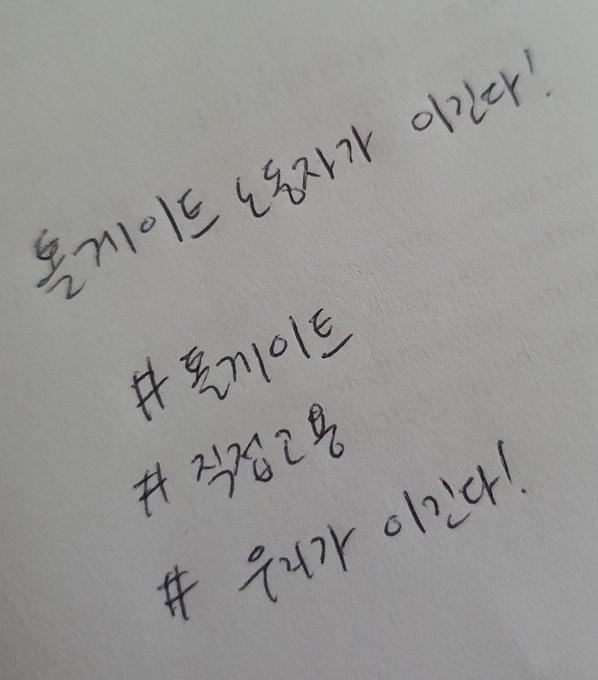 톨게이트 노동자가 이긴다!
# 톨게이트
# 직접고용
# 우리가 이긴다!